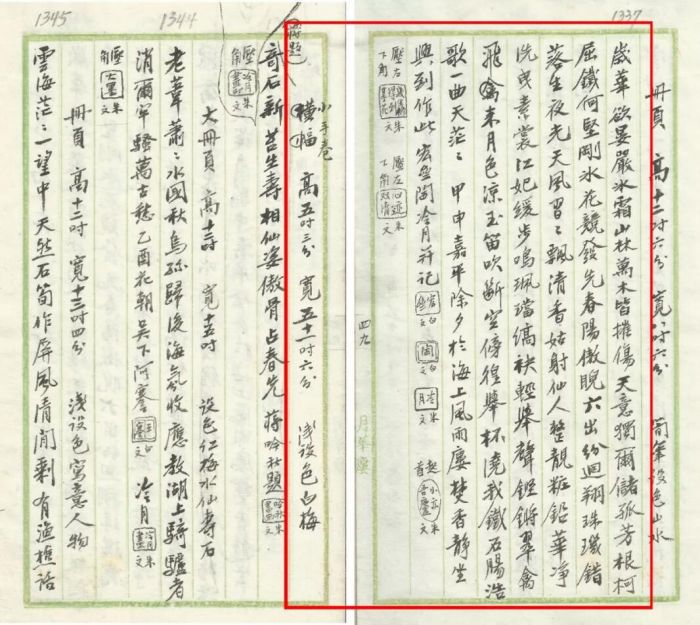 1337
冊頁 高十二吋六分 寬八吋六分 簡筆設色山水
歲華欲晏嚴冰霜山林萬木皆摧傷天意獨爾儲孤芳根柯
屈鐵何堅剛水花競發先春陽傲睨六出紛迴翔珠璣錯
落生夜光天風習〻飄清香姑射仙人整靚粧鉛華淨
洗曳素裳江妃緩步鳴珮璫縞袂輕舉聲鏗鏘翠禽
飛來月色涼玉笛吹斷空傍徨舉杯澆我鐵石腸浩
歌一曲天茫〻 甲申嘉平除夕於海上風雨廔焚香靜坐
興到作此宏盦陶冷月并記 白文 陶 白文 冷 朱文
壓左下角 朱文 壓左下角 心迹双清 朱文
四九
1344
1345
小手卷
橫幅 高五吋三分 寬五十一吋六分 淺設色白梅
奇石新苔生壽相仙姿傲骨占春先 蔣吟秋題 朱文
壓角 冷月畫記 朱文
大冊頁 高十二吋 寬十五吋 設色紅梅水仙壽石
老葦蕭〻水國秋鳥孫歸後海氛收應教湖上騎驢者
消爾牢騷萬古愁乙酉花朝吳下阿謇 白文 冷月 朱文
壓角 朱文
冊頁 高十二吋 寬十三吋四分 淺設色寫意人物
雲海茫〻一望中天然石筍作屏風清閒剩有漁樵話